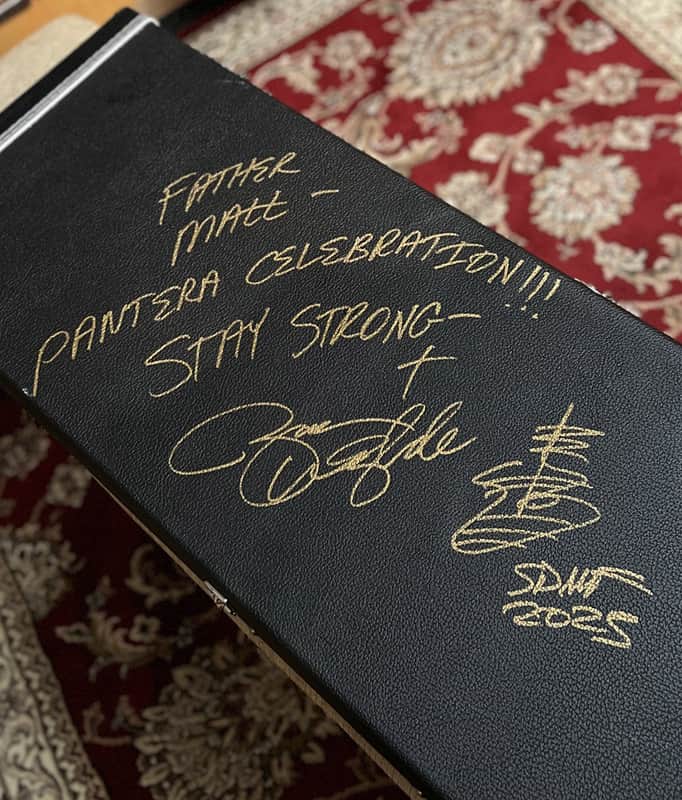 FATHER
MATT -
PANTERA CELEBRATION!!!
STAY STRONG-
SDMF
2025